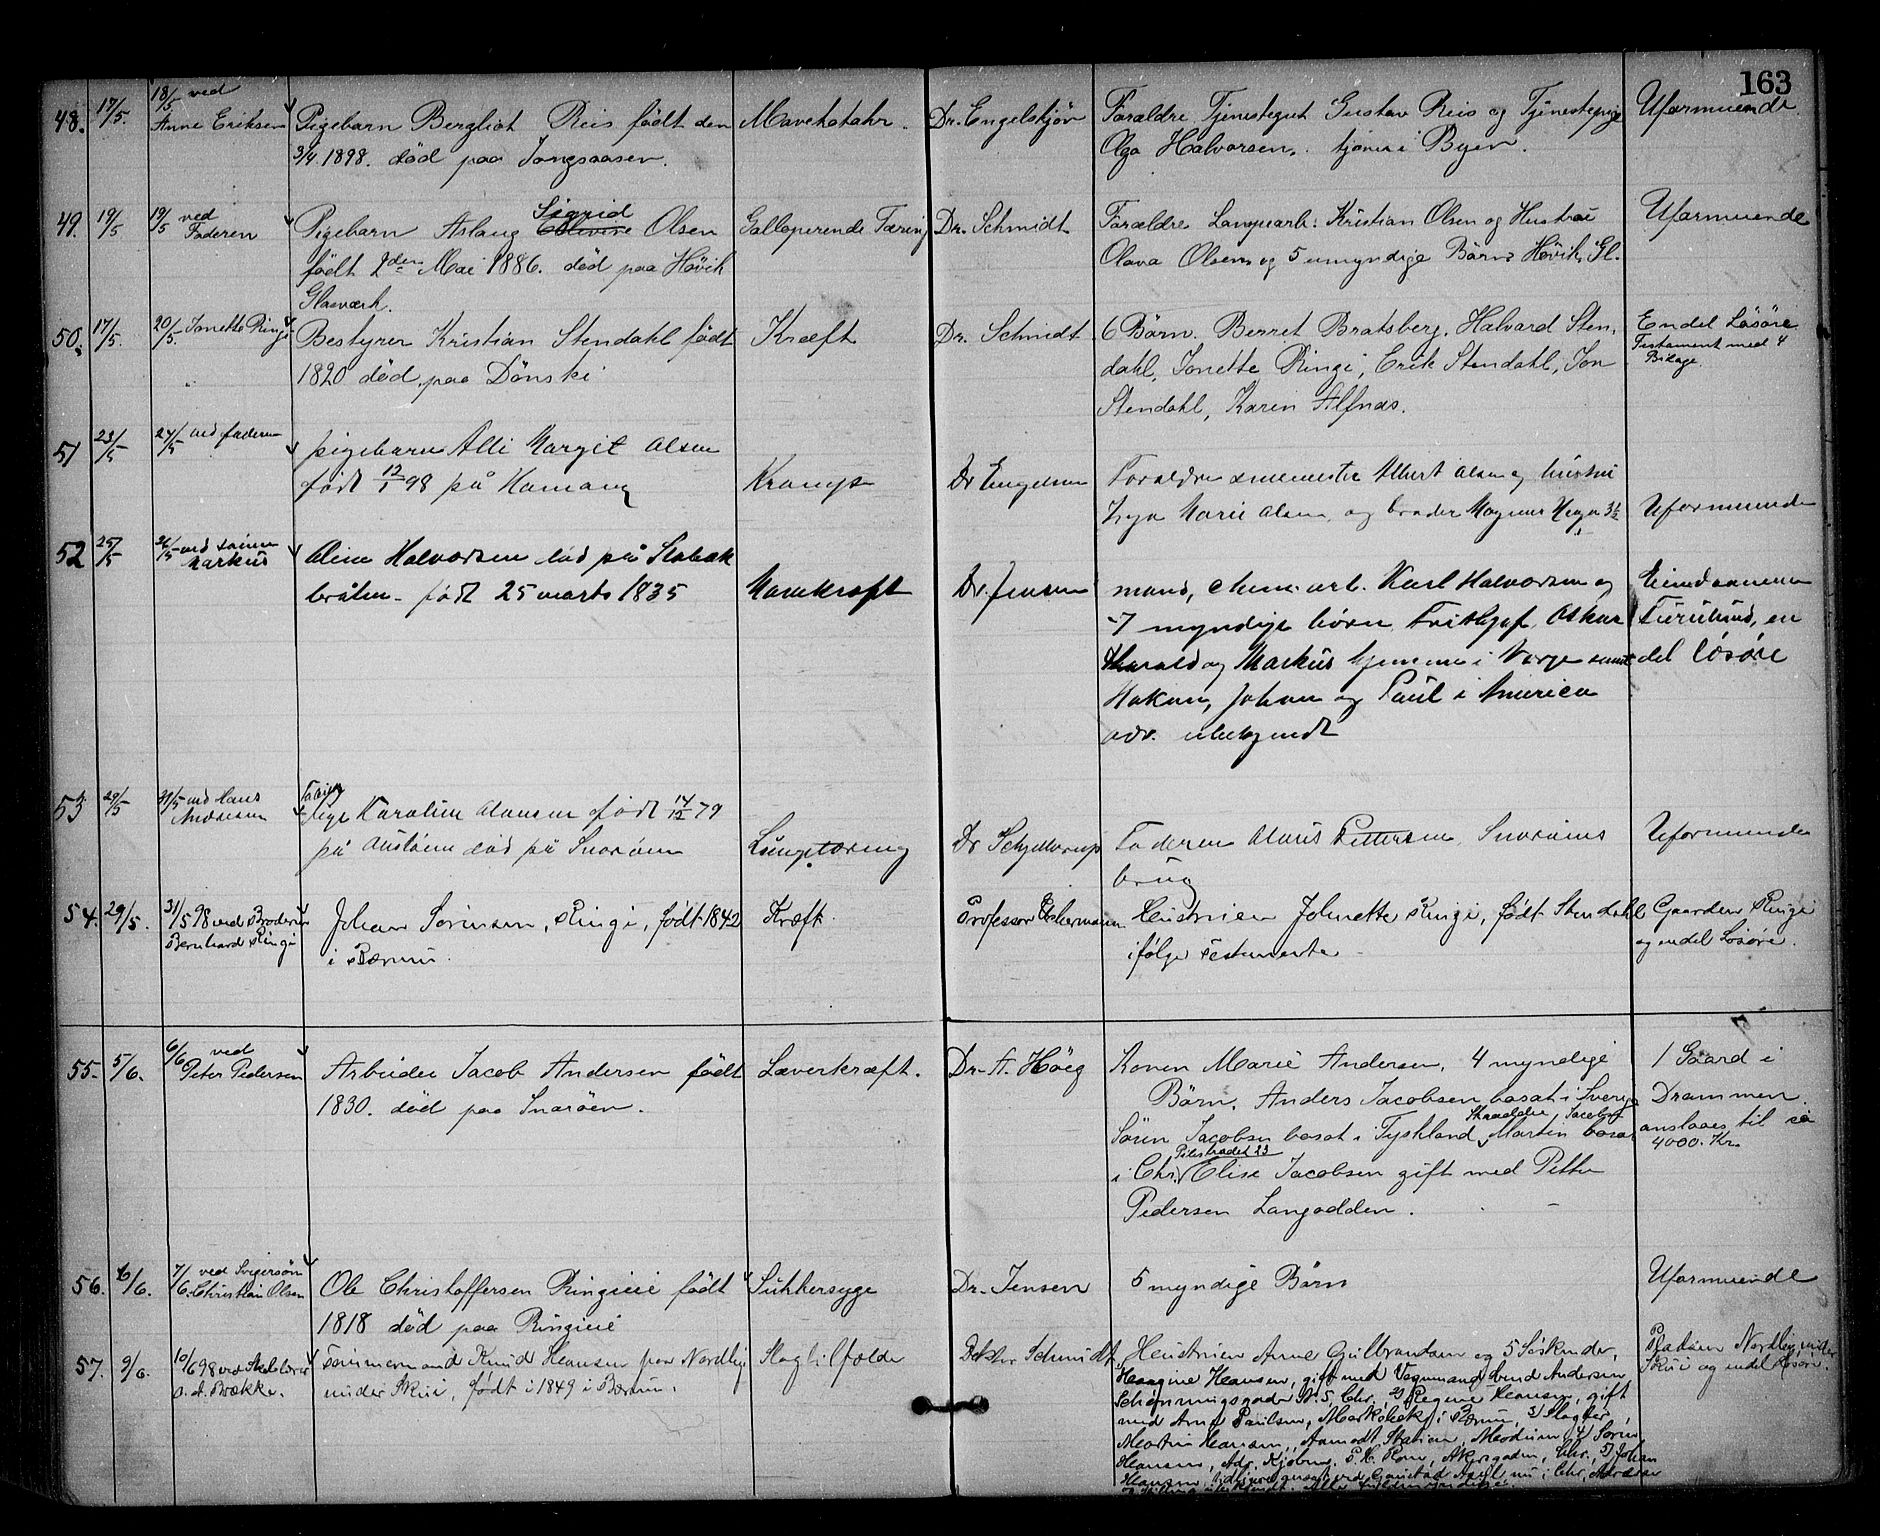 163
48. 17/5. 18/5 ved Anne Eriksen Pigebarn Bergliot Reis født den Mavekatahr. Dr. Engelskjøn Forældre Tjenestegut Gustav Reis og Tjenestepige Uformuende
3/4 1898. død paa Jongsaasen. Olga Halvorsen, tjener i Byen.
49. 19/5 19/5 ved Faderen Pigebarn Aslaug Sigrid Olsen Galloperende Tæring Dr. Schmidt Forældre Lampearb. Kristian Olsen og Hustru Uformuende
født 2den Mai 1886. død paa Høvik Olava Olsen og 5 umyndige Børn Høvik Gl.
Glasværk.
50. 17/5. 20/5. Jonette Ringi Bestyrer Kristian Stendahl født Kræft Dr. Schmidt 6 Børn. Berret Bratsberg, Halvard Sten- Endel Løsøre
1820 død paa Dønski dahl, Jonette Ringi, Erik Stendahl, Jon Testament med 4
Stendahl, Karen Alfnas. Bilage.
51 23/5 24/5 ved faderen pigebarn Alli Margit Olsen
født 12/1 98 på Hamang Krampe Dr Engelsen Forældre smemester Albert Olsen og hustru
Marie Olsen og broder Magnus 3½ Uformuende
52 25/5 26/5 ved sønnen Markus Aline Halvorsen død på Stabæk
bråten - født 25 marts 1835 Mavekræft Dr. Jensen mand, chem. arb. Karl Halvorsen og Eiendommen
7 myndige børn Frithjof, Oskar Furulund, en
Harald og Markus hjemme i Norge samt del løsøre
Hakon, Johan og Paul i America
adr. ubekjendt
53 29/5 31/5 ved Hans Andresen Fabrik
Pige Karoline Olausen født 14/12 79
på død på Snarøen Lungetæring Dr Schjelderup Faderen Olaus Pettersen Snarøens Uformuende
brug
54. 29/5. 31/5 98 ved Broderen Bernhard Ringi Johan Sørensen, Ringi, født 1842 Kræft. Professor Hustruen Johnette Ringi, født Stendahl Gaarden Ringi
i Bærum. ifølge Testamente - og endel Løsøre.
55. 5/6. 6/6 ved Peter Pedersen Arbeider Jacob Andersen født Læverkræft. Dr. A. Høeg Konen Marie Andersen, 4 myndige 1 Gaard i
1830. død paa Snarøen. Børn. Anders Jacobsen bosat i Sverige Drammen
Skrædder, Jacobsen
Søren Jacobsen bosat i Tyskland, Martin bosat anslaaes til ca
Pilestrædet 23 4000. Kr.
i Chr. Elise Jacobsen gift med Petter
Pedersen Langodden.
56. 6/6. 7/6. ved Svigersøn Christian Olsen Ole Christoffersen Ringieie født Sukkersyge Dr. Jensen 5 myndige Børn Uformuende
1818 død paa Ringieie
57. 9/6. 10/6 98 ved O. A. Brække. Tømmermand Knud Hansen paa Nordby Slagtilfælde Doktor Schmidt Hustruen Anne Gulbrandsen og 5 Søskende, Pladsen Nordby under
under Skui, født i 1849 i Bærum. Hansen, gift med Vognmand Andersen Skui og endel Løsøre.
No. 5 Chr., 2) Regine Hansen, gift
med Arne Paulsen, i Bærum, 3) Slagter
Martin Hansen, Aamodt Station, Modum, 4) Søren
Hansen, Adr. Chr., 5) Johan
Hansen i Chr., Adresse